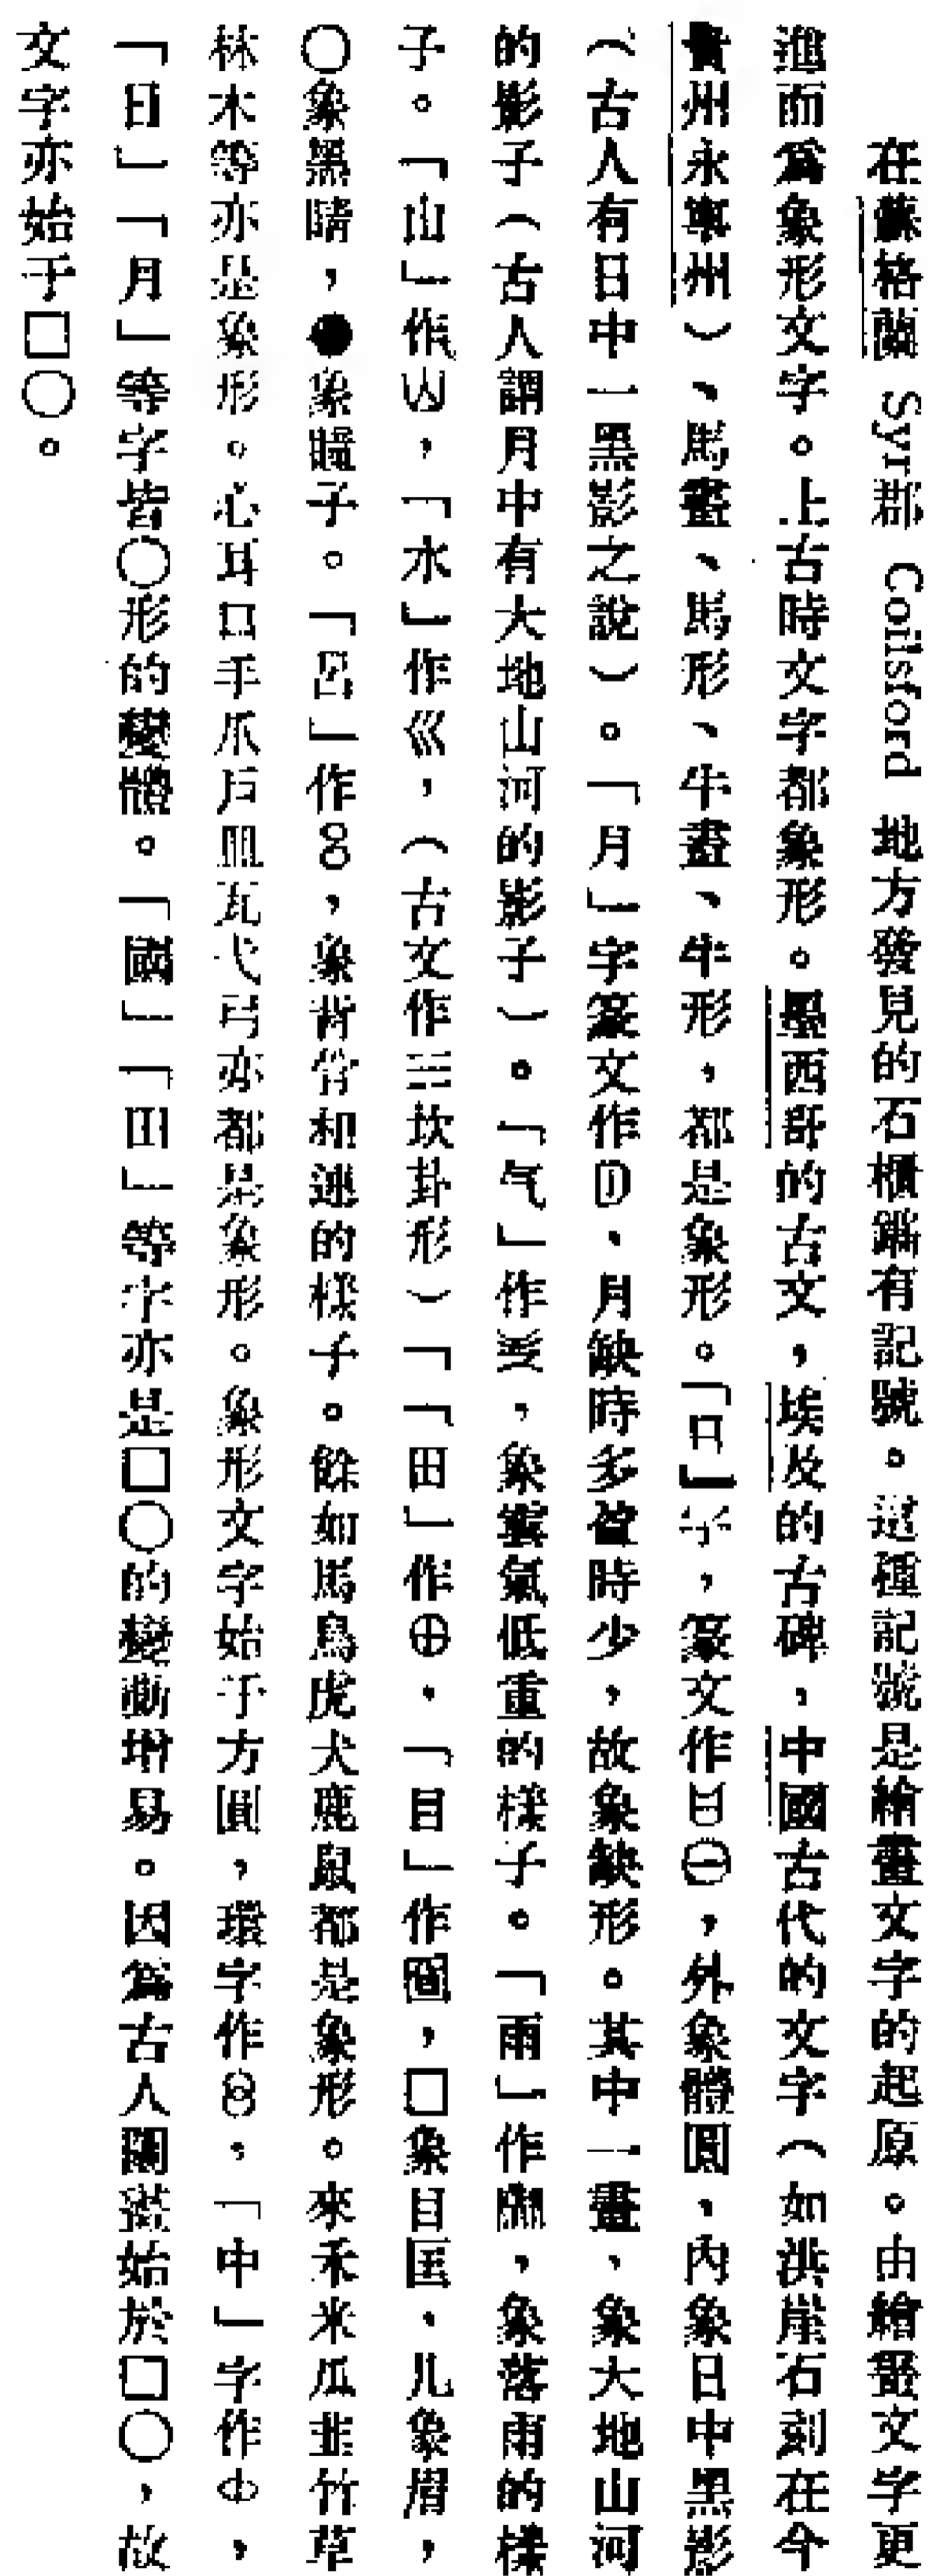 在蘇格蘭 Syr郡 Coilsford 地方發見的石櫃蹯有記號。這種記號是繪畫文字的起原。由繪畫文字更
進而爲象形文字。上古時文字都象形。墨西哥的古文，埃及的古碑，中國古代的文字（如洪崖石刻在今
貴州永寧州）、馬畫、馬形、牛畫、牛形，都是象形。「日」字，篆文作日㊀，外象體圓，內象日中黑影
（古人有日中一黑影之說）。「月」字篆文作，月缺時多盈時少，故象缺形。其中一畫，象大地山河
的影子（古人謂月中有大地山河的影子）。「气」作，象雲氣低重的樣子。「雨」作，象落雨的樣
子。「山」作，「水」作巛，（古文作坎卦形）「「田」作⊕，「目」作，□象目匡，儿象眉，
○象黑睛，●象瞳子。「呂」作，象背脊相連的樣子。餘如馬鳥虎犬鹿鼠都是象形。來禾米瓜韭竹草
林木等亦是象形。心耳口手爪戶皿瓦弋弓亦都是象形。象形文字始于方圓，環字作，「中」字作，
「日」「月」等字皆○形的變體。「國」「田」等字亦是□○的變動增易。因爲古人開蒙始於□○，故
文字亦始于□○。